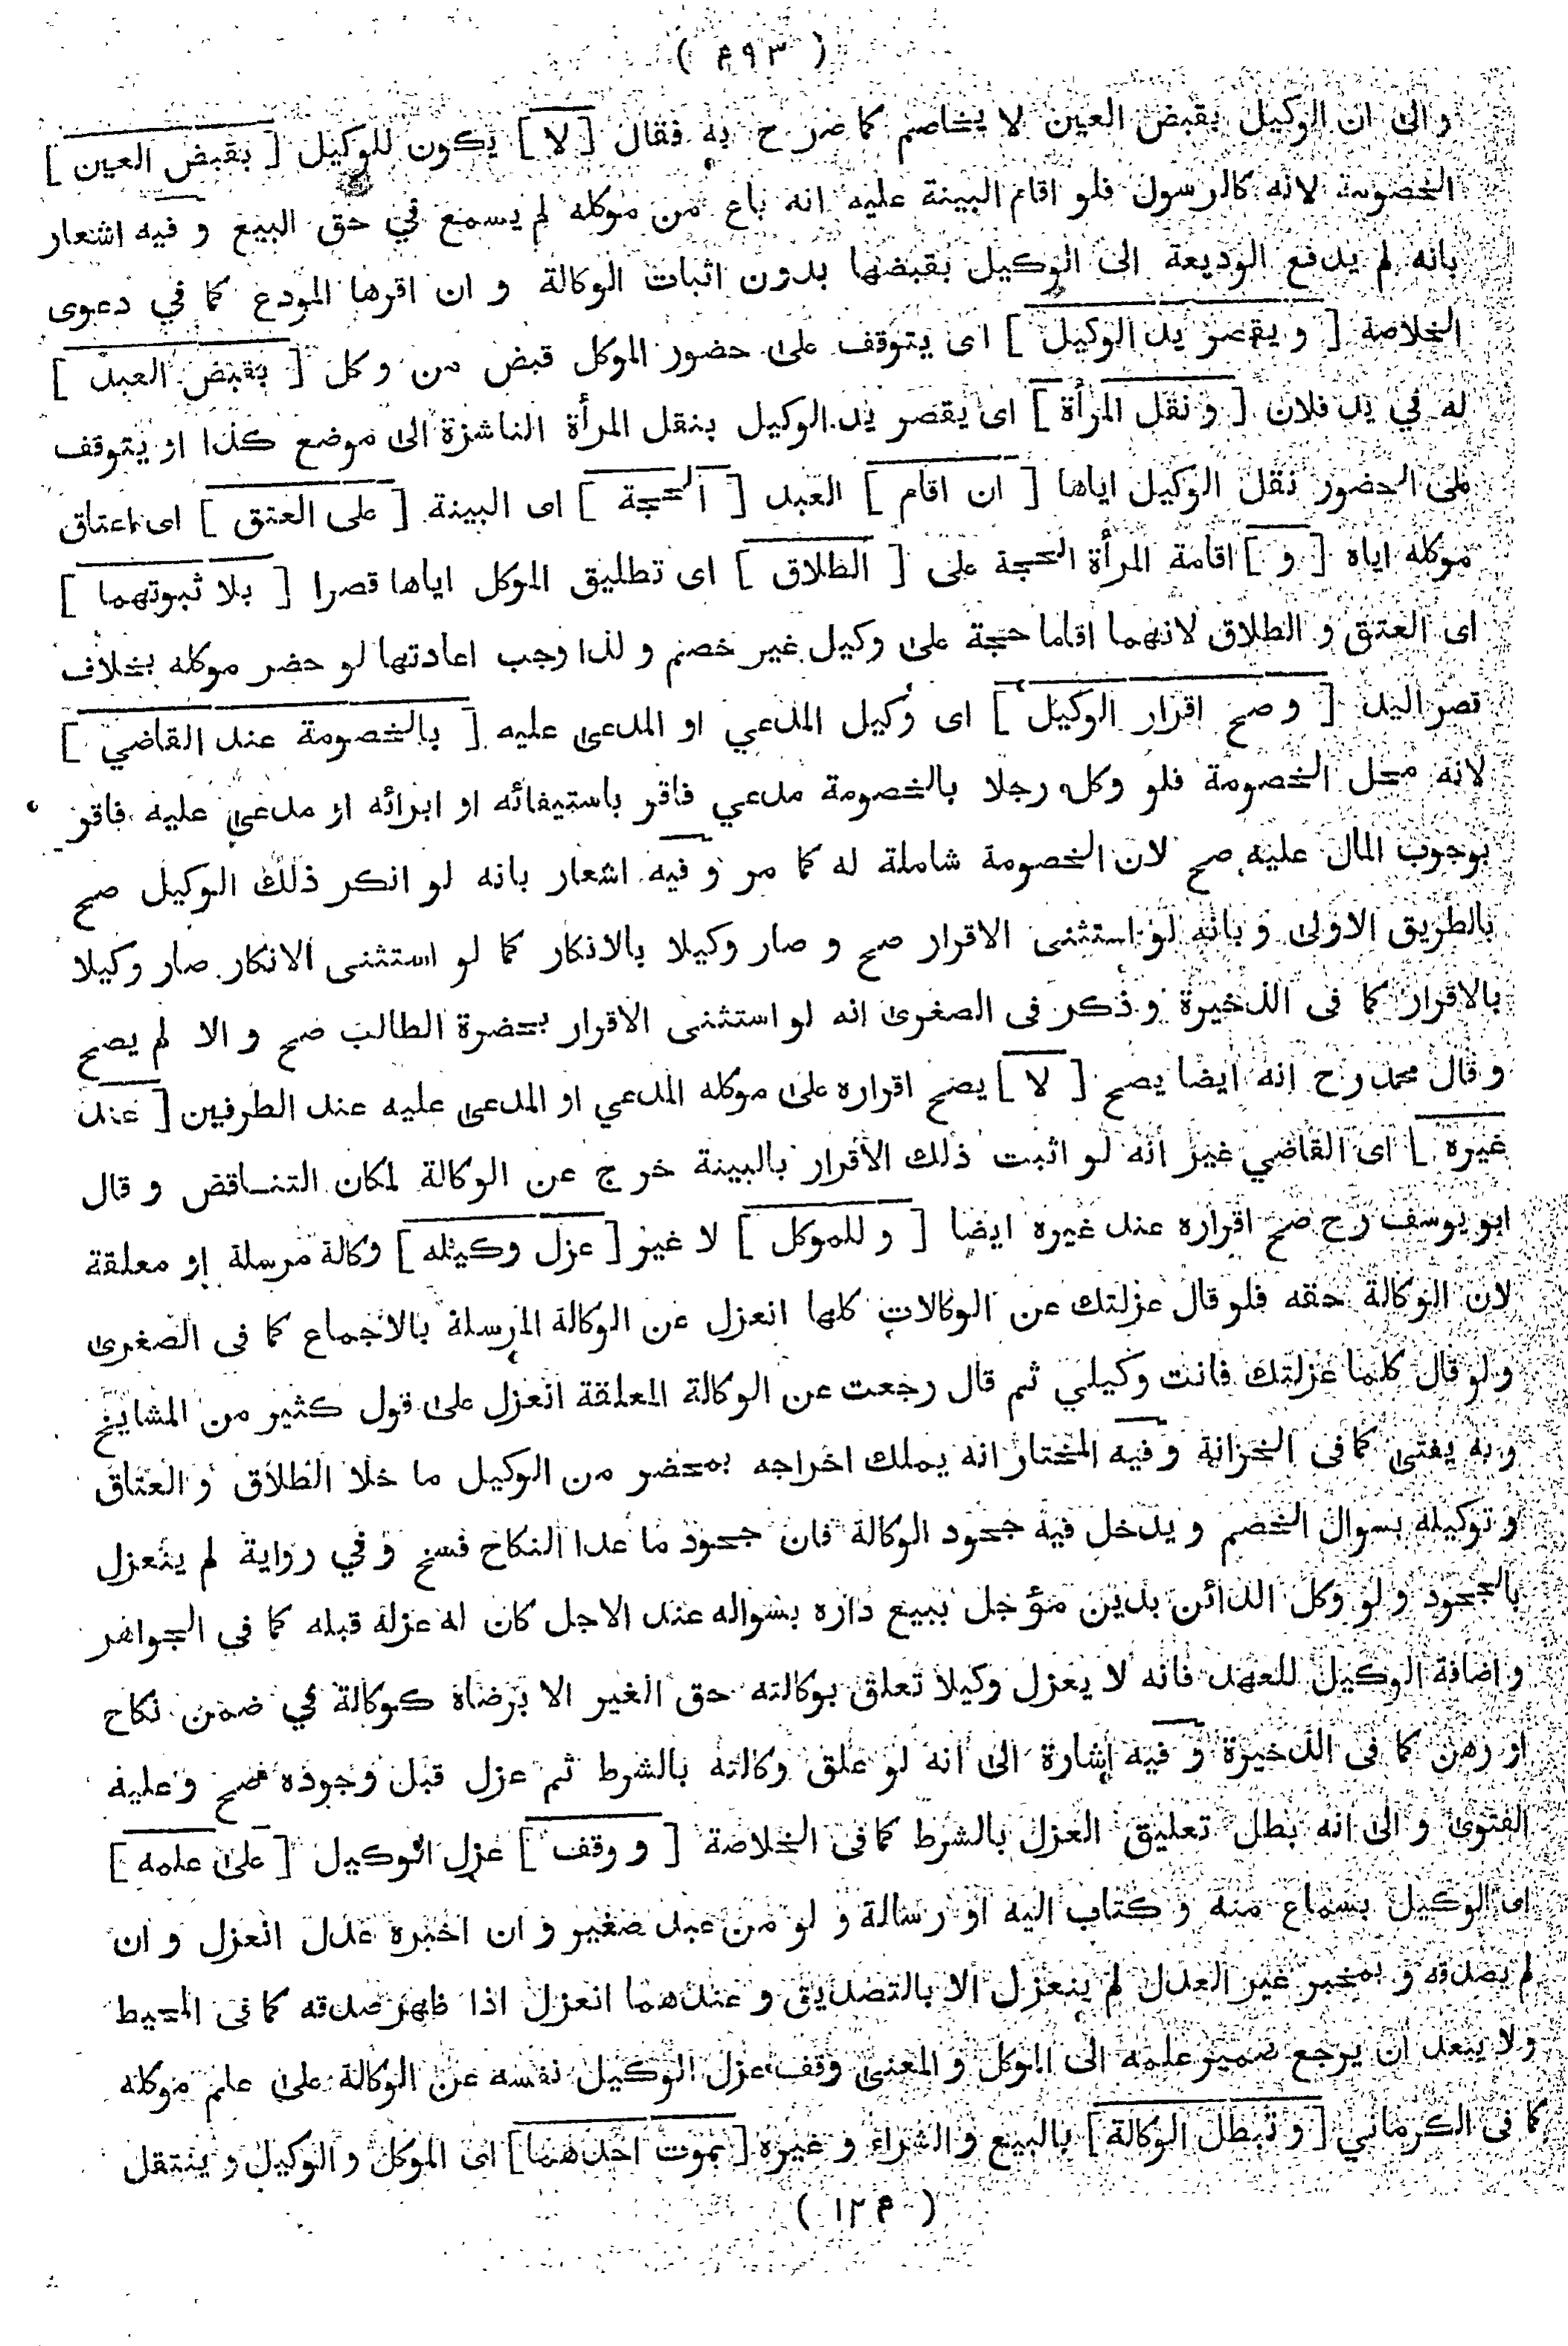 ( ۴۹۳ )
و الى ان الوكيل بقبض العين لا يخاصم كما صرح به فقال [ لا ] يكون للوكيل [ بقبض العين ]
الخصومة لانه كالرسول فلو اقام البينة عليه انه باع من موكله لم يسمع في حق البيع و فيه اشعار
بانه لم يدفع الوديعة الى الوكيل بقبضها بدون اثبات الوكالة و ان اقرها المودع كما في دعوى
الخلاصة [ و يقصر يد الوكيل ] اى يتوقف على حضور الموكل قبض من وكل [ بقبض العبد ]
له في يد فلان [ و نقل المرأة ] اى يقصر يد الوكيل بنقل المرأة الناشزة الى موضع كذا او يتوقف
على الحضور نقل الوكيل اياها [ ان اقام ] العبد [ الحجة ] اى البينة [ على العتق ] اى اعتاق
موكله اياه [ و ] اقامة المرأة الحجة على [ الطلاق ] اى تطليق الموكل اياها قصرا [ بلا ثبوتهما ]
اى العتق و الطلاق لانهما اقاما حجة على وكيل غير خصم و لذا وجب اعادتها لو حضر موكله بخلاف
قصر اليد [ و صح اقرار الوكيل ] اى وكيل المدعي او المدعى عليه [ بالخصومة عند القاضي ]
لانه محل الخصومة فلو وكل رجلا بالخصومة مدعي فاقر باستيفائه او ابرائه او مدعى عليه فاقر
بوجوب المال عليه صح لان الخصومة شاملة له كما مر و فيه اشعار بانه لو انكر ذلك الوكيل صح
بالطريق الاولى و بانه لو استثنى الاقرار صح و صار وكيلا بالانكار كما لو استثنى الانكار صار وكيلا
بالاقرار كما فى الذخيرة و ذكر فى الصغرى انه لو استثنى الاقرار بحضرة الطالب صح و الا لم يصح
و قال محمد رح انه ايضا يصح [ لا ] يصح اقراره على موكله المدعي او المدعى عليه عند الطرفين [ عند
غيره ] اى القاضي غير انه لو اثبت ذلك الاقرار بالبينة خرج عن الوكالة لمكان التناقض و قال
ابو يوسف رح صح اقراره عند غيره ايضا [ و للموكل ] لا غير [ عزل وكيله ] وكالة مرسلة او معلقة
لان الوكالة حقه فلو قال عزلتك عن الوكالات كلها انعزل عن الوكالة المرسلة بالاجماع كما فى الصغرى
و لو قال كلما عزلتك فانت وكيلي ثم قال رجعت عن الوكالة المعلقة انعزل على قول كثير من المشايخ
و به يفتى كما فى الخزانة و فيه المختار انه يملك اخراجه بمحضر من الوكيل ما خلا الطلاق و العتاق
و توكيله بسوال الخصم و يدخل فيه جحود الوكالة فان جحود ما عدا النكاح فسخ و في رواية لم ينعزل
بالجحود و لو وكل الدائن بدين مؤجل ببيع داره بسواله عند الاجل كان له عزله قبله كما في الجواهر
و اضافة الوكيل للعهد فانه لا يعزل وكيلا تعلق بوكالته حق الغير الا برضاه كوكالة في ضمن نكاح
او رهن كما فى الذخيرة و فيه اشارة الى انه لو علق وكالته بالشرط ثم عزل قبل وجوده صح و عليه
الفتوى و الى انه بطل تعليق العزل بالشرط كما فى الخلاصة [ و وقف ] عزل الوكيل [ على علمه ]
اى الوكيل بسماع منه و كتاب اليه او رسالة و لو من عبد صغير و ان اخبره عدل انعزل و ان
لم يصدقه و بمخبر غير العدل لم ينعزل الا بالتصديق و عندهما انعزل اذا ظهر صدقه كما فى المحيط
و لا يبعد ان يرجع ضمير علمه الى الموكل و المعنى وقف عزل الوكيل نفسه عن الوكالة على علم موكله
كما فى الكرماني [ و تبطل الوكالة ] بالبيع و الشراء و غيره [ بموت احدهما ] اى الموكل و الوكيل و ينتقل
( ۱۲۴ )